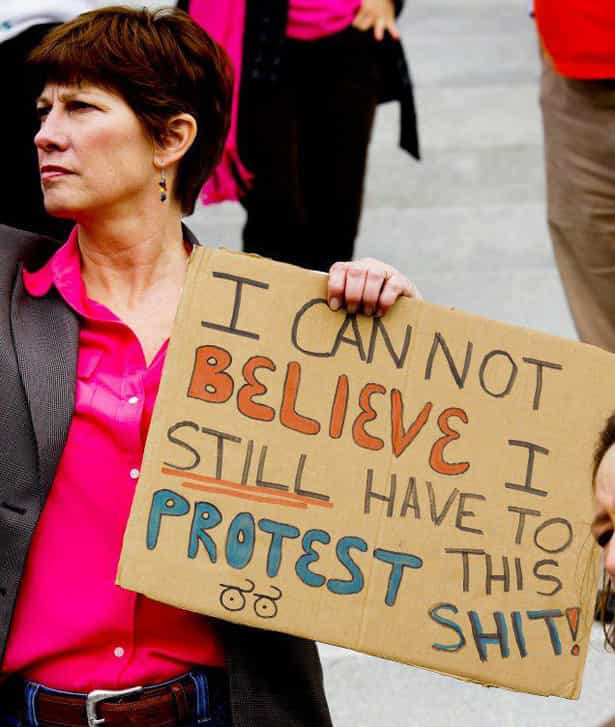 I CAN NOT
BELIEVE I
STILL HAVE TO
PROTEST THIS
SHIT!